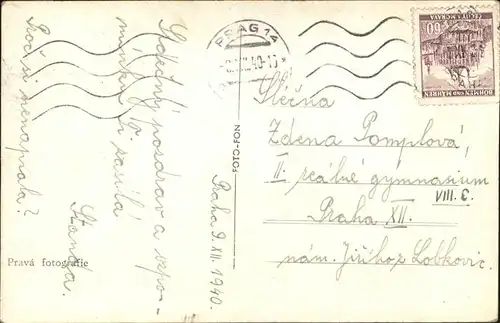 Srdečný pozdrav a vzpo-
mínku Ti zasílá
Standa.
Proč si nenapsala?
Praha 9. XII. 1940.
Pravá fotografie
FOTO-FON
PRAG 14
BÖHMEN UND MÄHREN
ČECHY A MORAVA
Slečna
Zdena Pomplová,
II. reálné gymnasium
VIII. C.
Praha XII.
nám. Jiřího z Lobkovic.